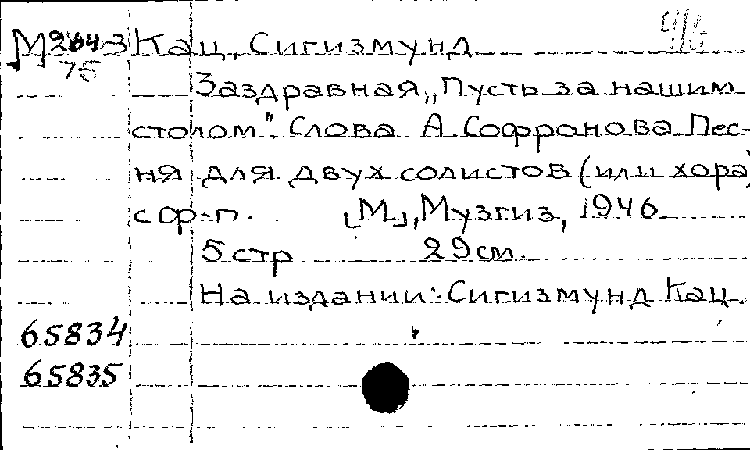 М264-3 Кац, Сигизмунд
75
Заздравная „Пусть за нашим
столом". Слова А. Софронова Пес-
ня для двух солистов (или хора)
с ф-п. [М], Музгиз, 1946
5 стр 29 см.
На издании: Сигизмунд Кац.
65834
65835